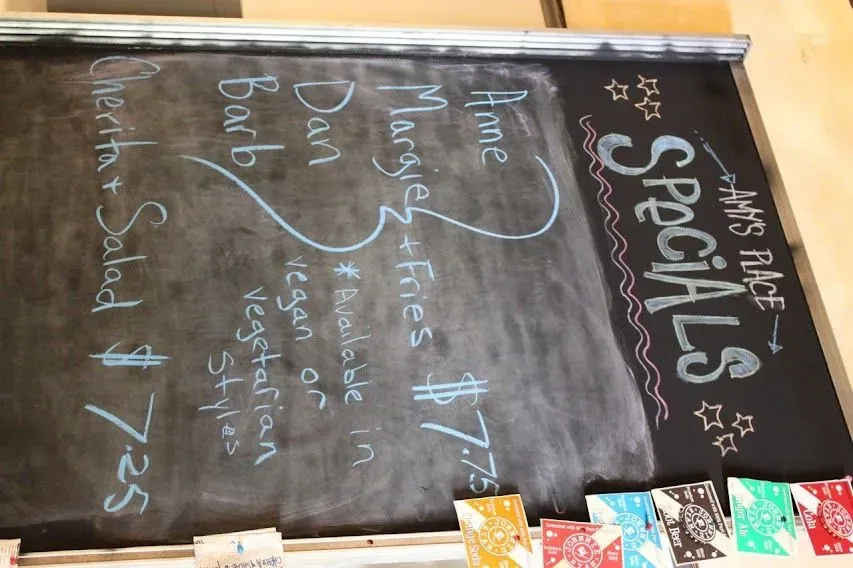 AMY'S PLACE
SPECIALS
Anne
Margie + Fries $7.75
Dan
Barb
*Available in
vegan or
vegetarian
styles
Cherita + Salad $7.25
Cola
Beer